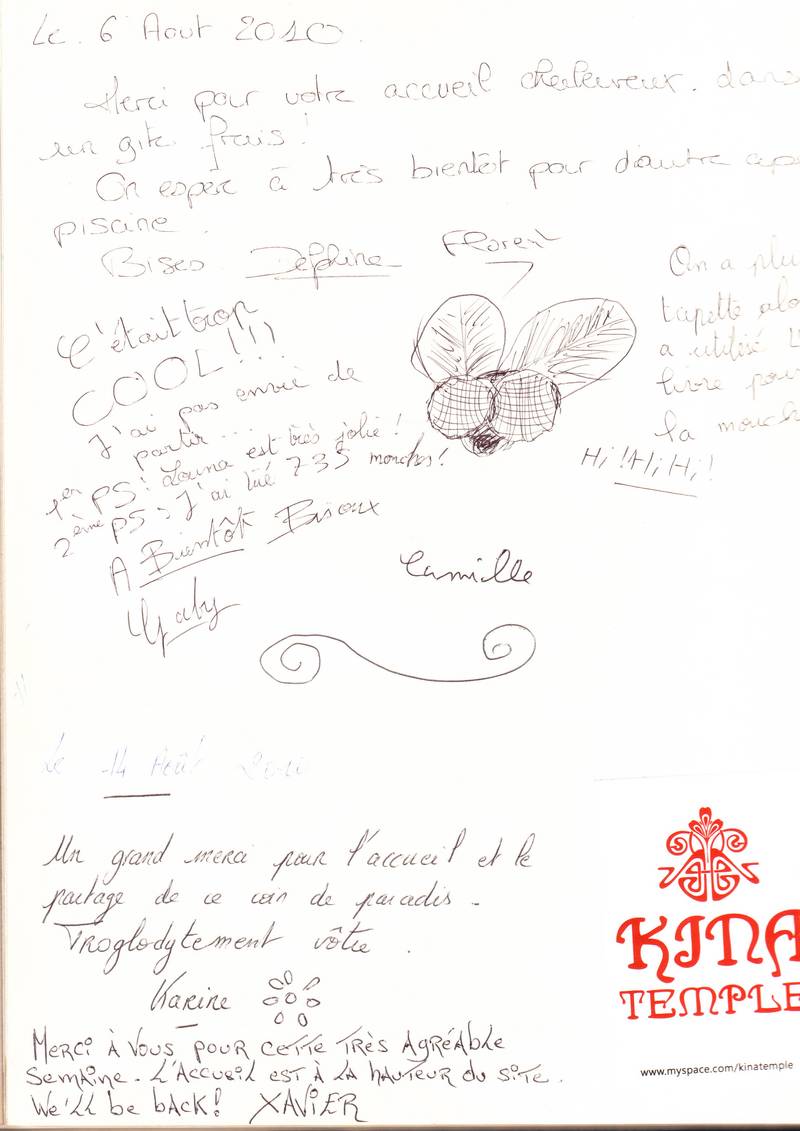 Le 6 Aout 2010.
Merci pour votre accueil chaleureux. dans
un gite frais!
On espere à très bientôt pour d'autre apé
piscine.
Bises Delphine
Florent
C'était trop
COOL!!!
J'ai pas envie de
partir...
1er PS: Louna est très jolie!
2ème PS: J'ai tué 735 mouches!
A Bientôt Bisoux
Gaby
On a plu
tapette alo
a utilisé l
livre pour
la mouch
Hi! Hi, Hi!
Camille
Le 14 Août 2010
Un grand merci pour l'accueil et le
partage de ce coin de paradis.
Troglodytement vôtre.
Karine
Merci à vous pour cette très agréable
semaine. L'accueil est à la hauteur du site.
We'll be back! XAVIER
KINA
TEMPLE
www.myspace.com/kinatemple